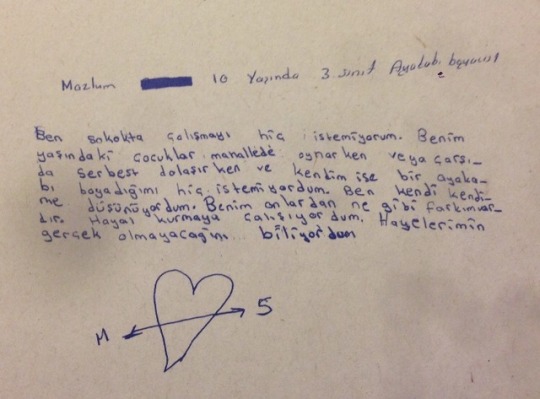 Mazlum 10 Yaşında 3. sınıf Ayakab. boyacısı
Ben sokokta çalışmayı hiç istemiyorum. Benim
yaşındaki çocuklar mahallede oynarken veya çarşı-
da serbest dolaşırken ve kendim ise bir ayaka-
bı boyadığımı hiç istemiyordum. Ben kendi kendi-
me düşünüyordum. Benim onlardan ne gibi farkımvar-
dır. Hayal kurmaya çalışıyordum. Hayelerimin
gerçek olmayacağını biliyordum
M S